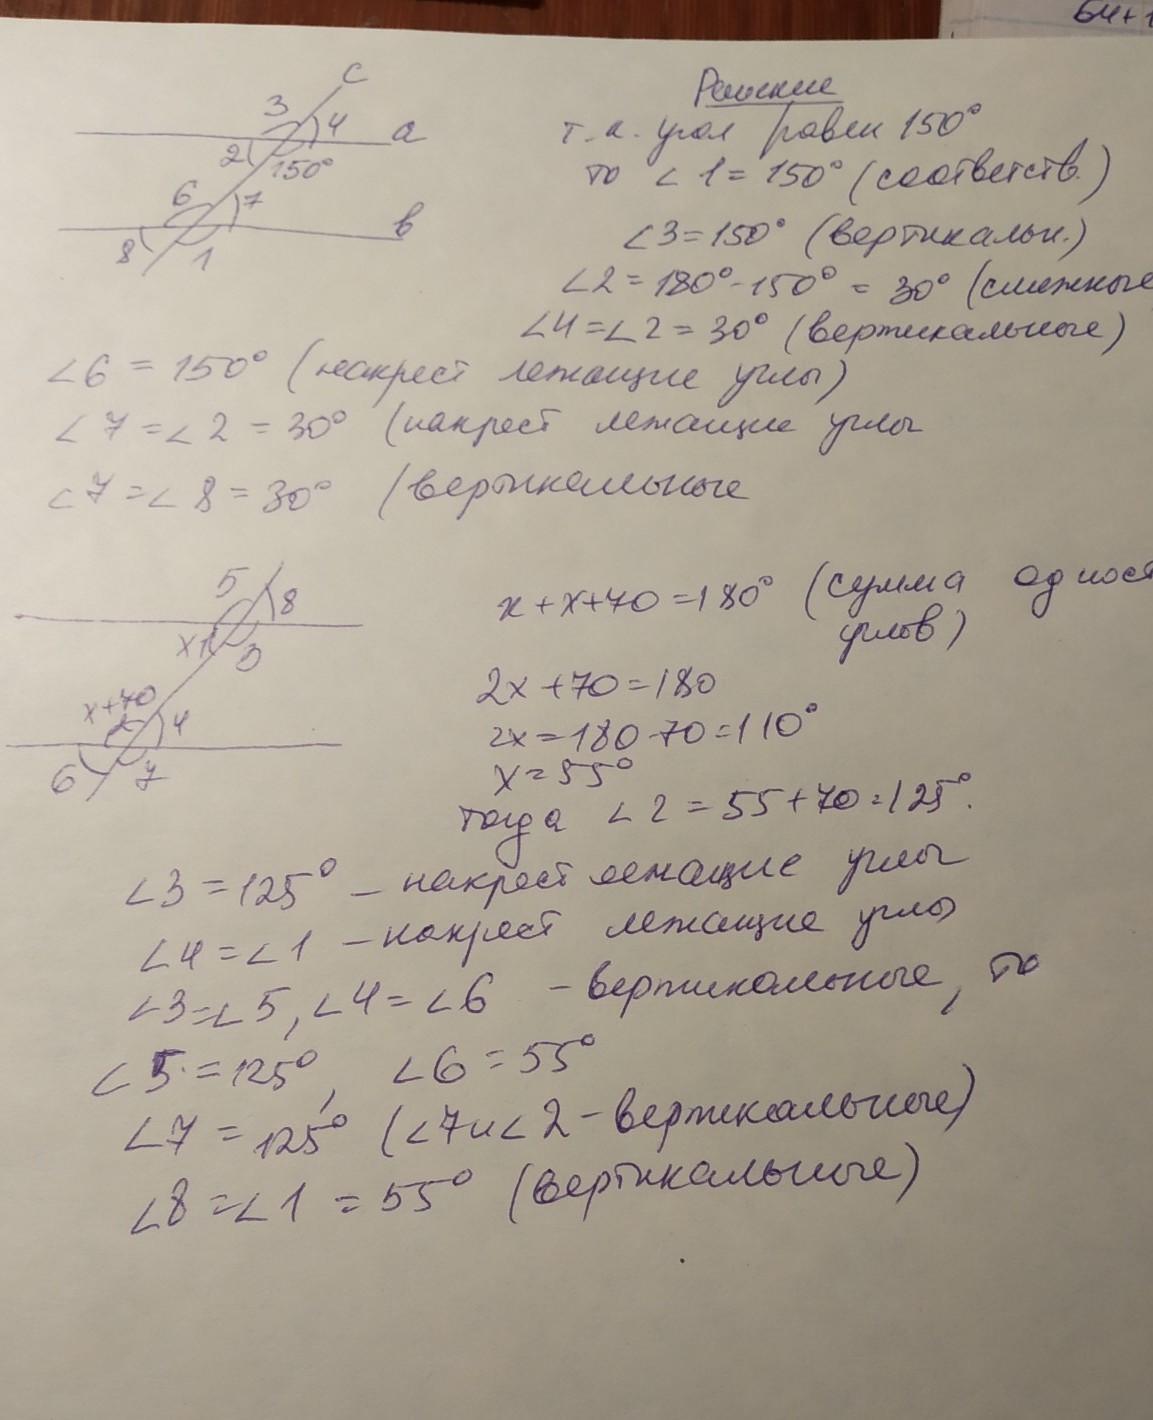 64+1
c
3 4 a
2 150°
6 7
8 1 b
Решение
т.к. угол равен 150°
то ∠1=150° (соответств.)
∠3=150° (вертикальн.)
∠2=180°-150°=30° (смежные
∠4=∠2=30° (вертикальные)
∠6=150° (накрест лежащие углы)
∠7=∠2=30° (накрест лежащие углы
∠7=∠8=30° (вертикальные
5 8
x1 3
x+70
2 4
6 7
x+x+70=180° (сумма одност
углов)
2x+70=180
2x=180-70=110°
x=55°
тогда ∠2=55+70=125°.
∠3=125° – накрест лежащие углы
∠4=∠1 – накрест лежащие углы
∠3=∠5, ∠4=∠6 – вертикальные, то
∠5=125°, ∠6=55°
∠7=125° (∠7и∠2 – вертикальные)
∠8=∠1=55° (вертикальные)